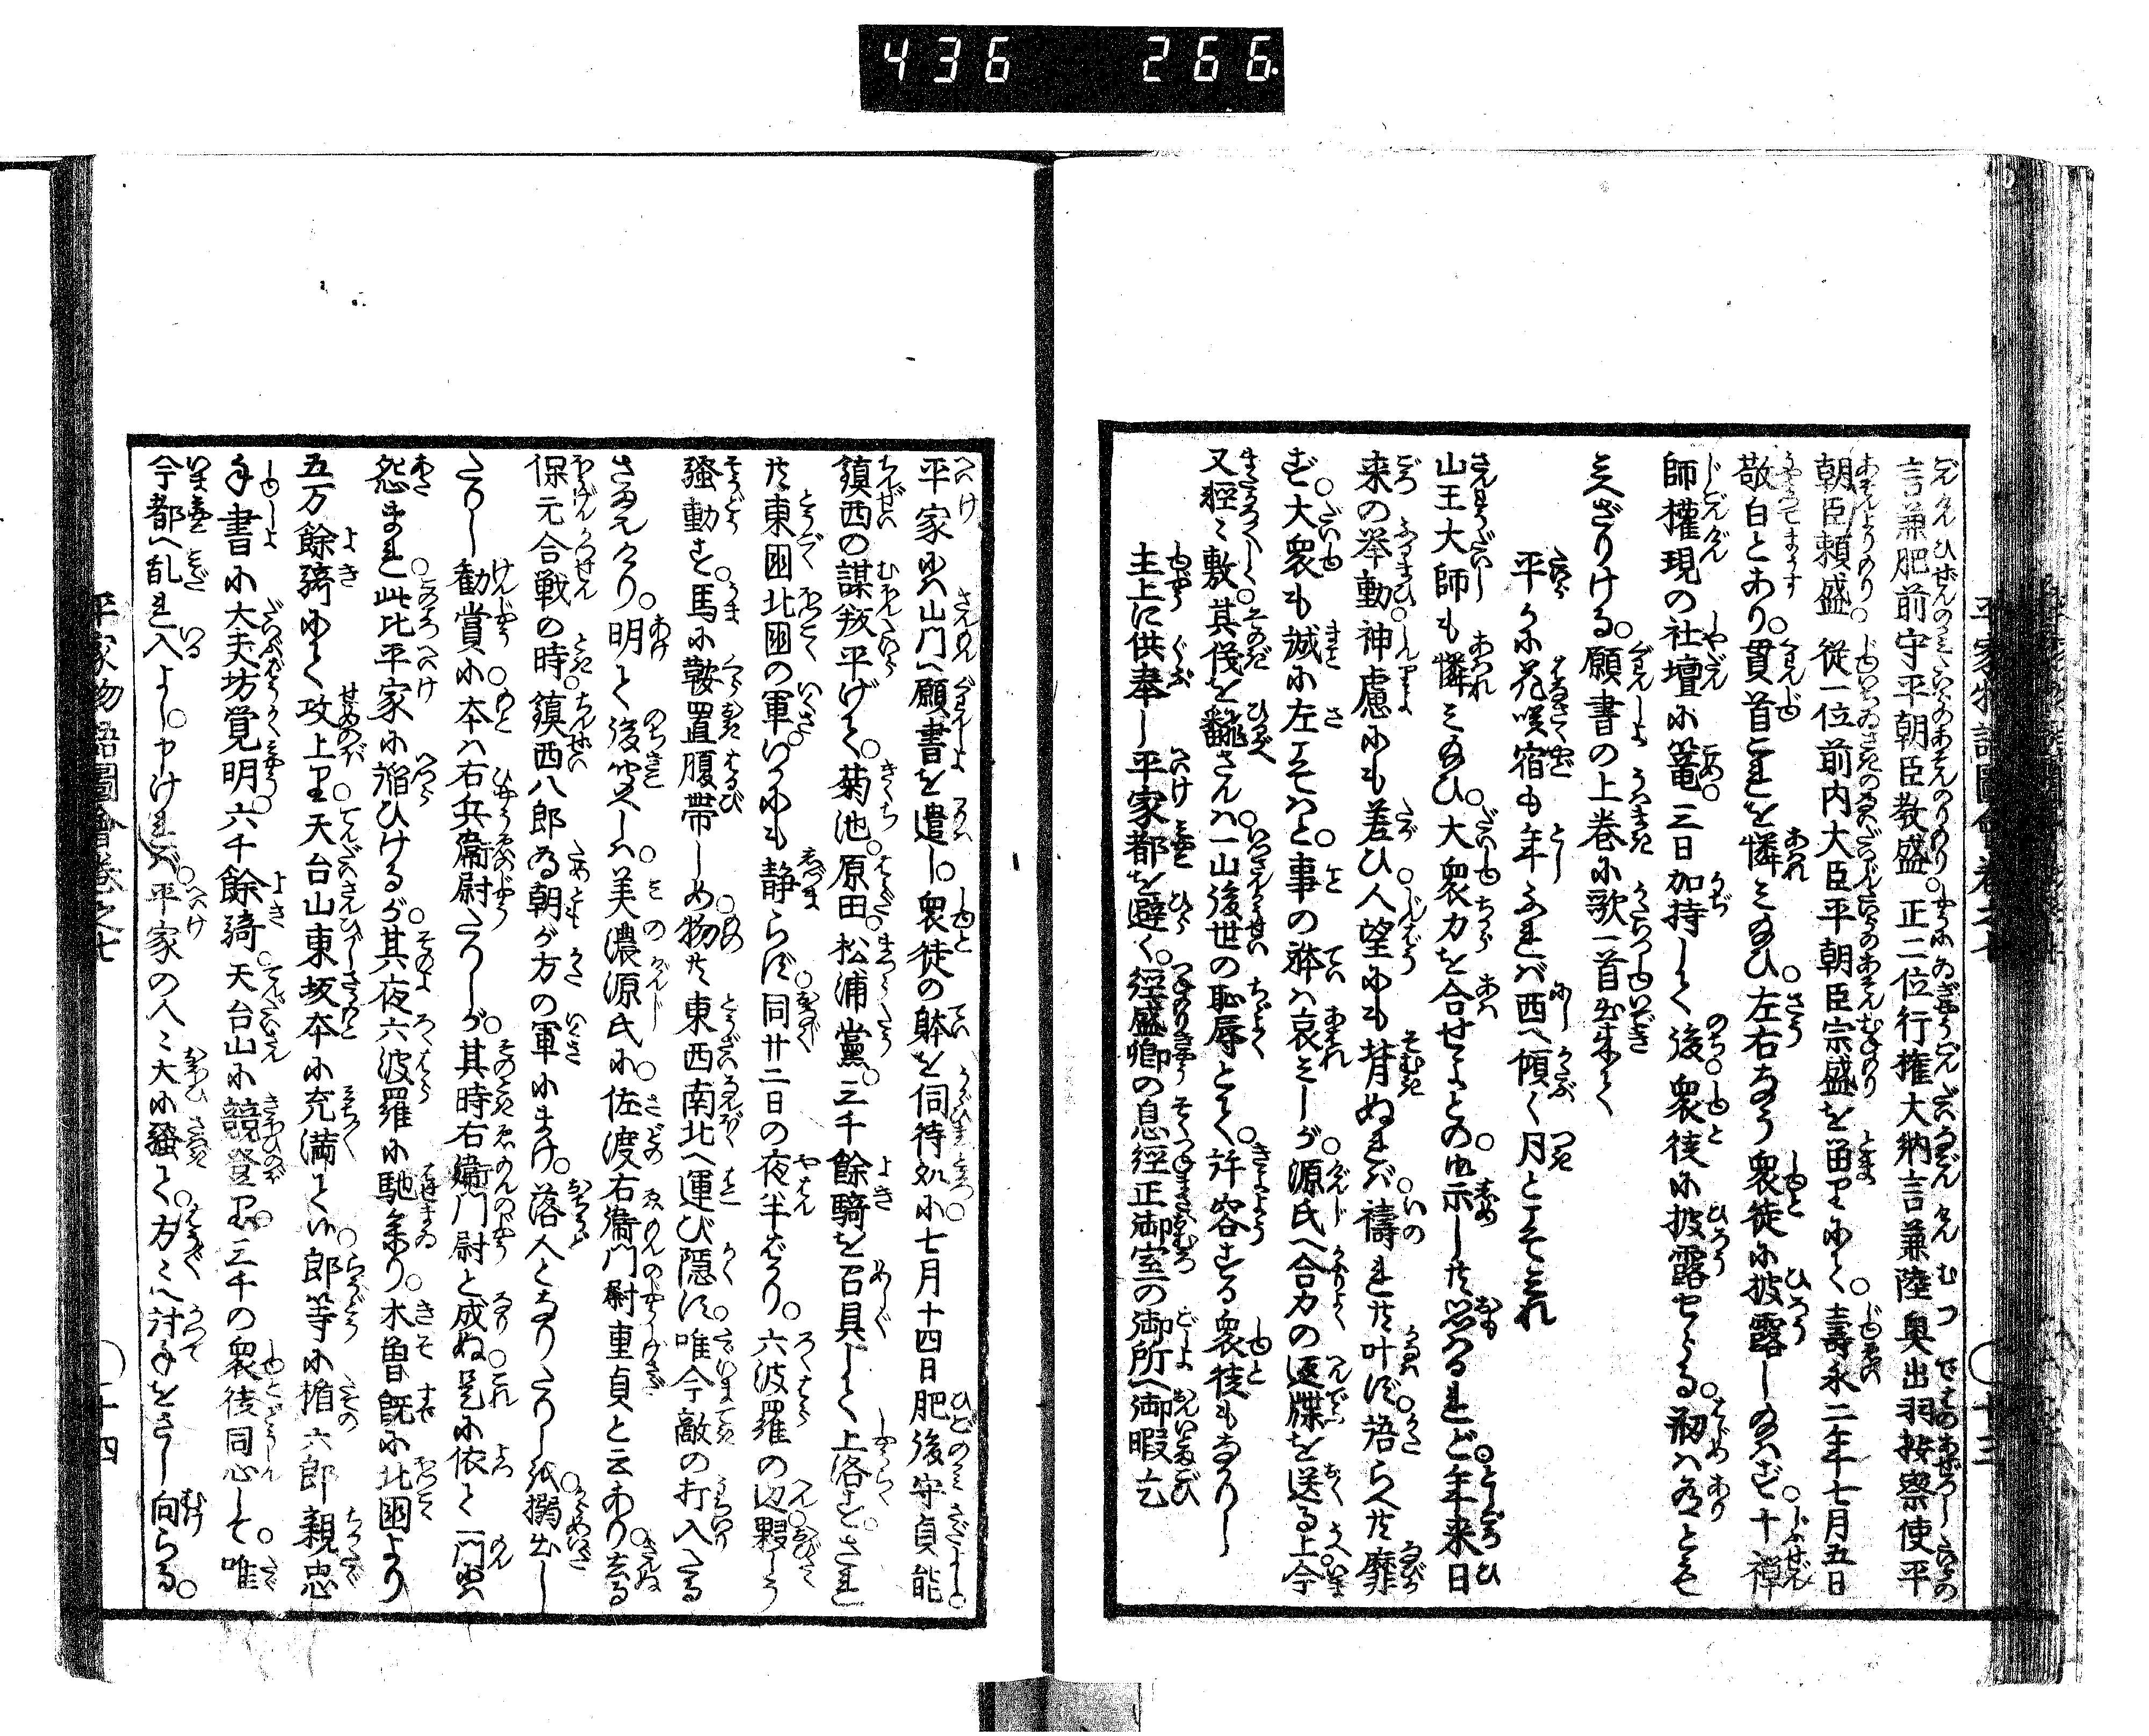 436 266
言兼肥前守平朝臣教盛。正二位行権大納言兼陸奥出羽按察使平
朝臣頼盛。従一位前内大臣平朝臣宗盛を留里にて。壽永二年七月五日
敬白とあり。貫首これを憐ミ給ひ。左右なう衆徒に披露し給ハず。十禅
師權現の社壇に篭。三日加持して後。衆徒に披露せらる。初ハ有とも
見へざりける。願書の上巻に歌一首出来て
平かに花咲宿も年ふれバ西へ傾く月とこそみれ
山王大師も憐ミ給ひ。大衆力を合せよとの。御示しは思ハるれど。年来日
来の挙動。神慮にも差ひ。人望にも背ぬれバ。禱れは叶ず。語らへは靡
ず。大衆も誠に左こそハと。事の躰ハ哀ミしが。源氏へ合力の返牒を送る上。今
又軽々敷。其儀を飜さん。ハ一山後世の恥辱とて。許容する衆徒もなかりし
主上に供奉し平家都を避く。經盛卿の息經正御室の御所へ御暇乞
平家物語圖會巻之七 十三
平家にハ山門へ願書を遣し。衆徒の躰を伺待処に。七月十四日肥後守貞能。
鎮西の謀叛平げて。菊池。原田。松浦黨。三千餘騎を召具して上洛す。され
共東國北國の軍。いかにも静らず。同廿二日の夜半ばかり。六波羅の辺夥しう
騒動す。馬に鞍置腹帯しめ。物共東西南北へ運び隠す。唯今敵の打入たる
さまなり。明て後。聞へしハ。美濃源氏に。佐渡右衛門尉重貞と云あり。去る
保元合戦の時。鎮西八郎為朝が方の軍にまけ。落人となりたりし。搦出し
たりし勸賞に。本ハ右兵衛尉たりしが。其時右衛門尉と成ぬ。是に依て一門にハ
怨まれ。此比平家に諂ひけるが。其夜六波羅に馳參り。木曽既に北國より
五万餘騎にて攻上り。天台山東坂本に充満て候。郎等に楯六郎親忠
手書に大夫坊覚明。六千餘騎。天台山に競登り。三千の衆徒同心して。唯
今都へ乱れ入よし。申けれバ。平家の人々大に騒て。方々へ討手をさし向らる。
平家物語圖會巻之七 十四